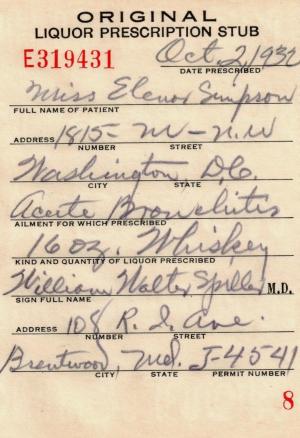 ORIGINAL
LIQUOR PRESCRIPTION STUB
E319431 Oct. 2, 1932
DATE PRESCRIBED
Miss Elenor Simpson
FULL NAME OF PATIENT
ADDRESS 1815 - M - N.W
NUMBER STREET
Washington D.C.
CITY STATE
Acute Bronchitis
AILMENT FOR WHICH PRESCRIBED
16 oz. Whiskey
KIND AND QUANTITY OF LIQUOR PRESCRIBED
William Walter Spiller M.D.
SIGN FULL NAME
ADDRESS 108 R. I. Ave.
NUMBER STREET
Brentwood, Md. J-4541
CITY, STATE PERMIT NUMBER
8